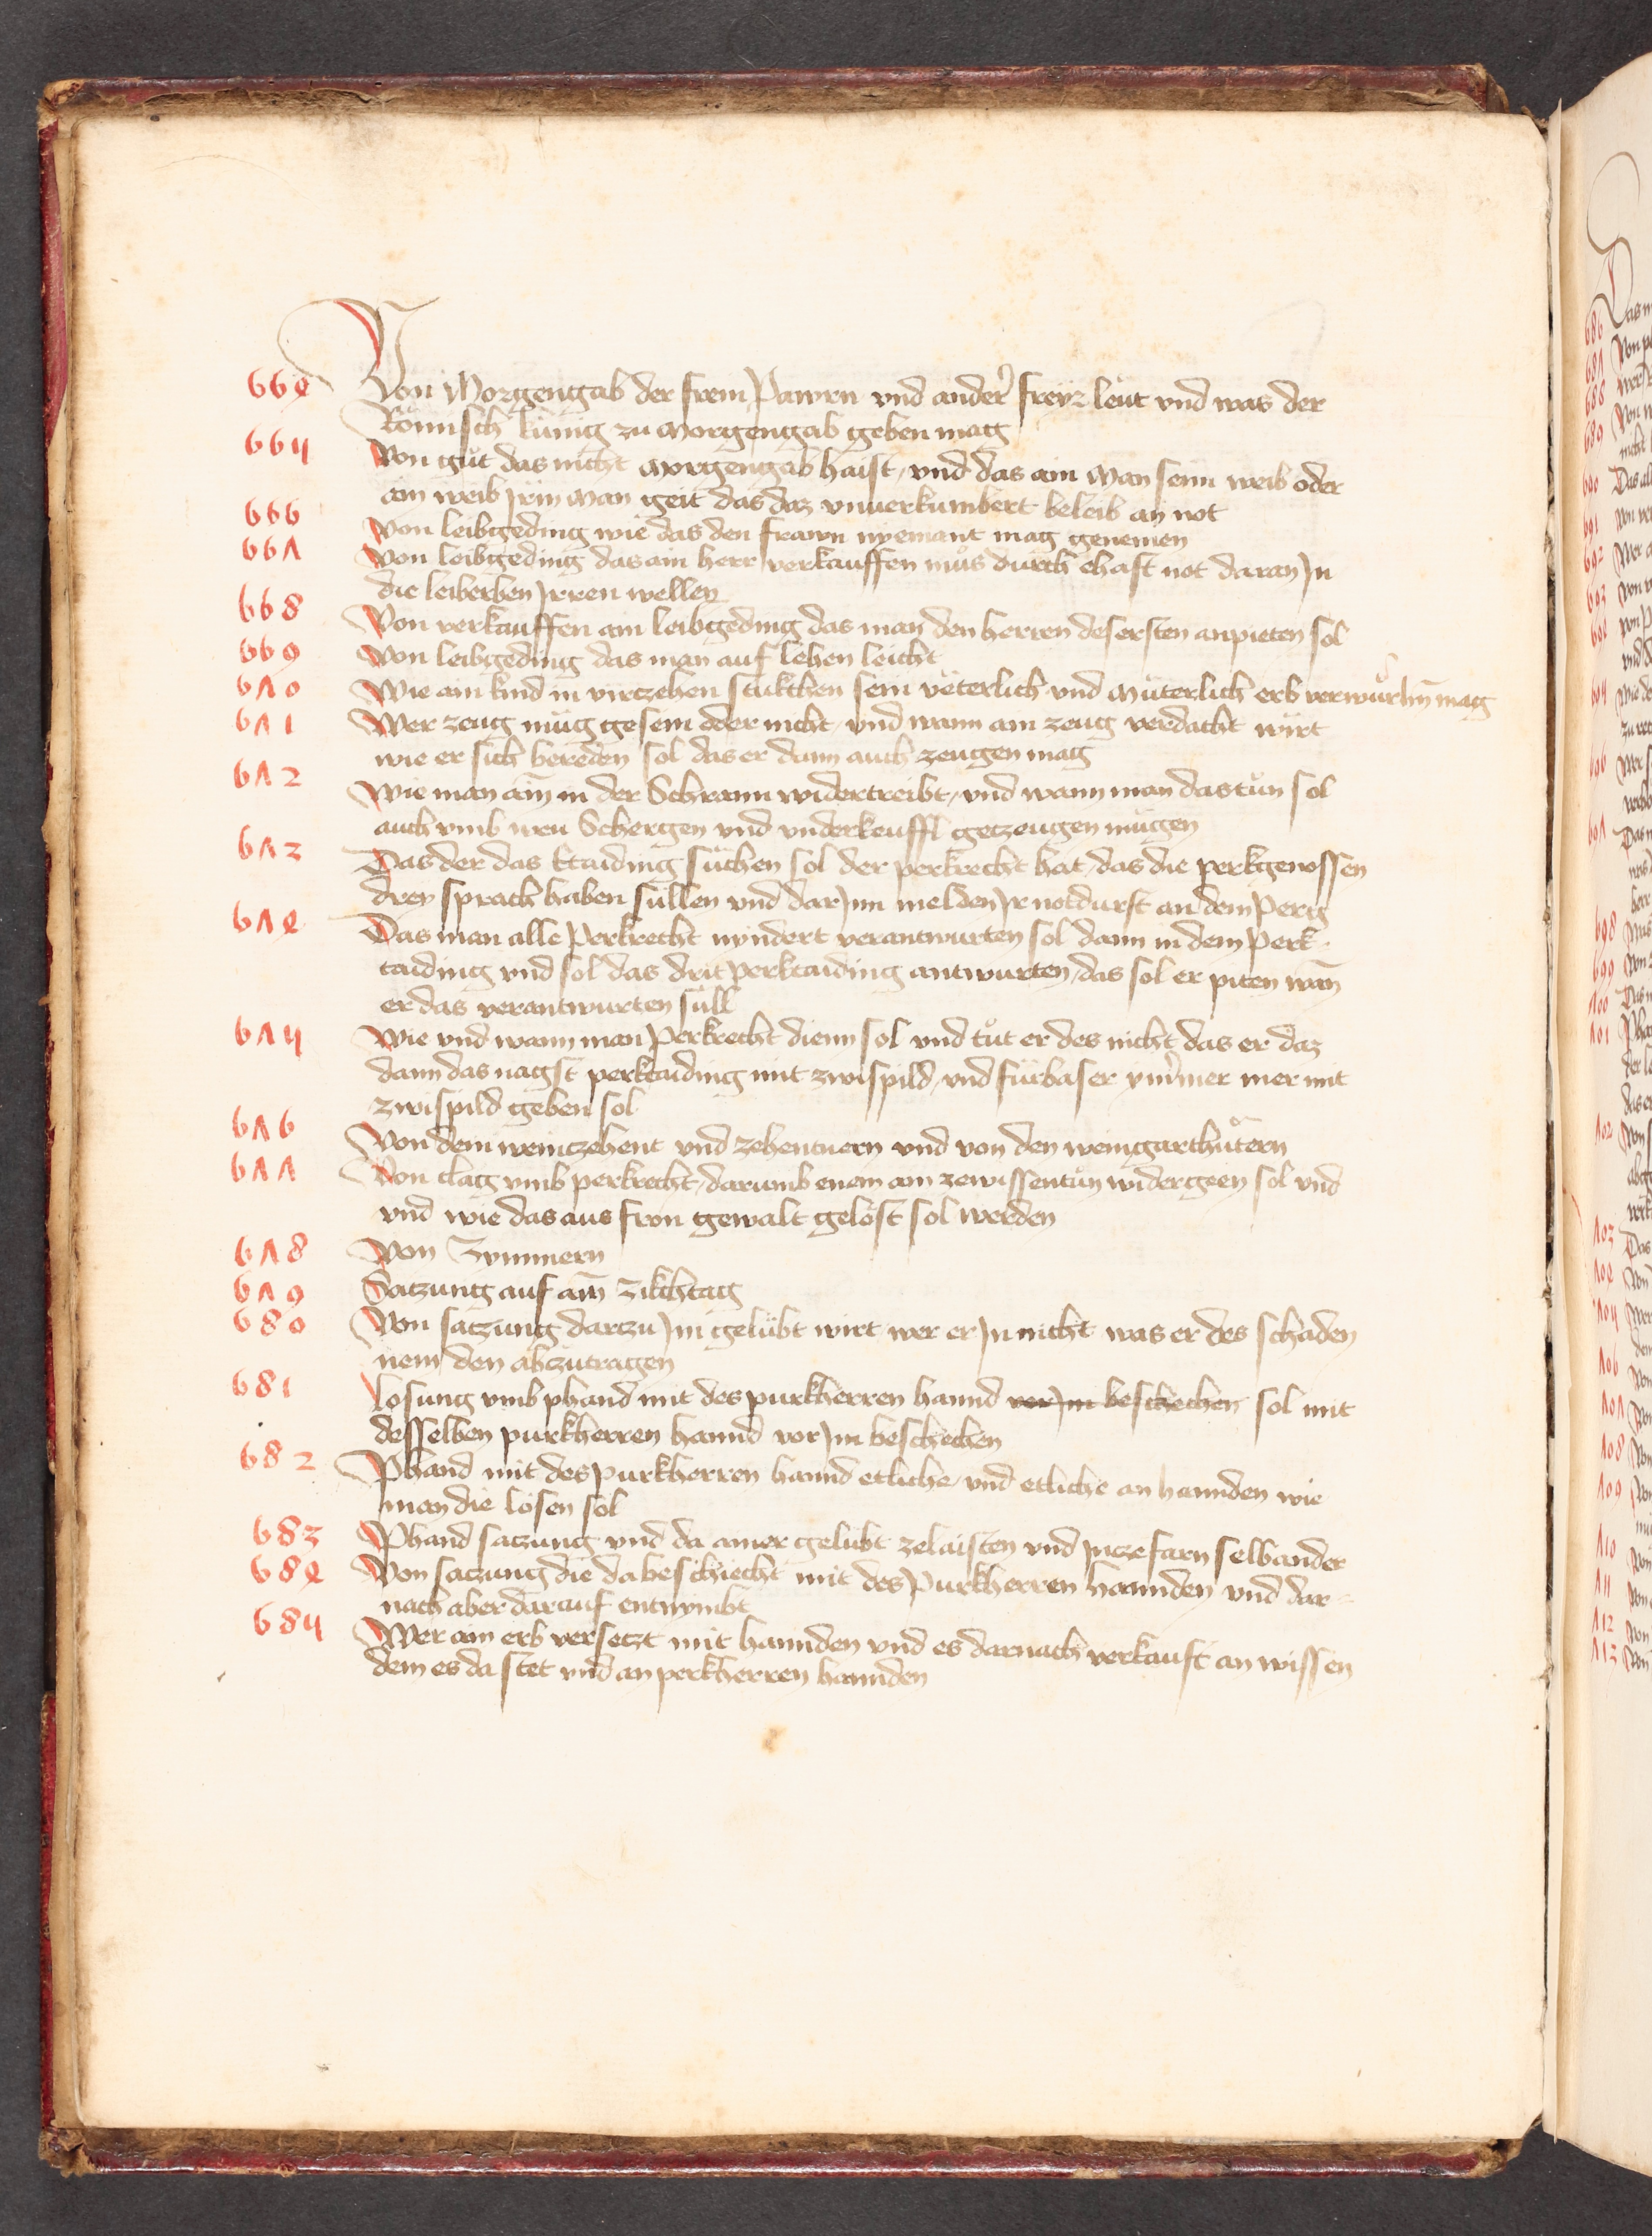 664 Von Morgengab der frein Pawrn vnd ander freyr leut vnd was der
Römisch künig zu morgengab geben mag
665 Von gůt das nicht morgengab haist, vnd das ain man seim weib oder
ain weib jrm man geit das daz vnuerkumbert beleib an not
666 von leibgeding wie das den frawn nyemant mag genemen
667 Von leibgeding das ain herr verkauffen můs durch ehaft not daran Jn
die leiberben Jrren wellen
668 Von verkauffen ain leibgeding das man den herren des ersten anpieten sol
669 Von leibgeding das man auf lehen leicht
670 Wie ain kind in virczehen stukchen sein veterlich vnd můterlich erb verwurhn mag
671 Wer zeug mug gesein oder nicht, vnd wann ain zeug verdacht wirt
wie er sich bereden sol das er dann auch zeugen mag
672 Wie man ain in der Schrann widertreibt, vnd wann man das tůn sol
auch vmb weu Schergen vnd vnderkeuffl geczeugen mugen
673 Das der das taiding suchen sol der perkrecht hat, das die perkgenossen
drey sprach haben sullen vnd dar Jnn melden Jr notdurft an dem Perg
674 Das man alle Perkrecht nyndert verantwurten sol dann in dem Perk-
taiding vnd sol das drit Perktaiding antwurten, das sol er piten wan
er das verantwurten sull
675 Wie vnd wann man Perkrecht dienn sol vnd tůt er des nicht das er daz
dann das nagst perktaiding mit zwispild, vnd fürbaser ymmer mer mit
zwispild geben sol
676 Von dem weinczehent vnd zehentnern vnd von den weingarthütern
677 Von clag vmb perkrecht, darumb enem am zewissentůn widergeen sol vnd
vnd wie das aus fron gewalt gelöst sol werden
678 Von Zymmern
679 Satzung auf ain zikchtag
680 Von satzung darczu Jm gelübt wirt wer er Jn nicht was er des schaden
nem den abczutragen
681 Losung vmb phand mit des purkherren hannd vor Jm beschechen sol mit
desselben purkherren hannd vor Jm beschechen
682 Phand mit des purkherren hannd etliche, vnd etliche an hannden wie
man die lösen sol
683 Phand satzung vnd da ainer gelubt zelaisten vnd Jnczefarn selbander
684 Von saczung die da beschiecht mit des Purkherren hannden vnd dar-
nach aber darauf entnymbt
685 Wer ain erb versetzt mit hannden vnd es darnach verkauft an wissen
dem es da stet vnd an perkherren hannden